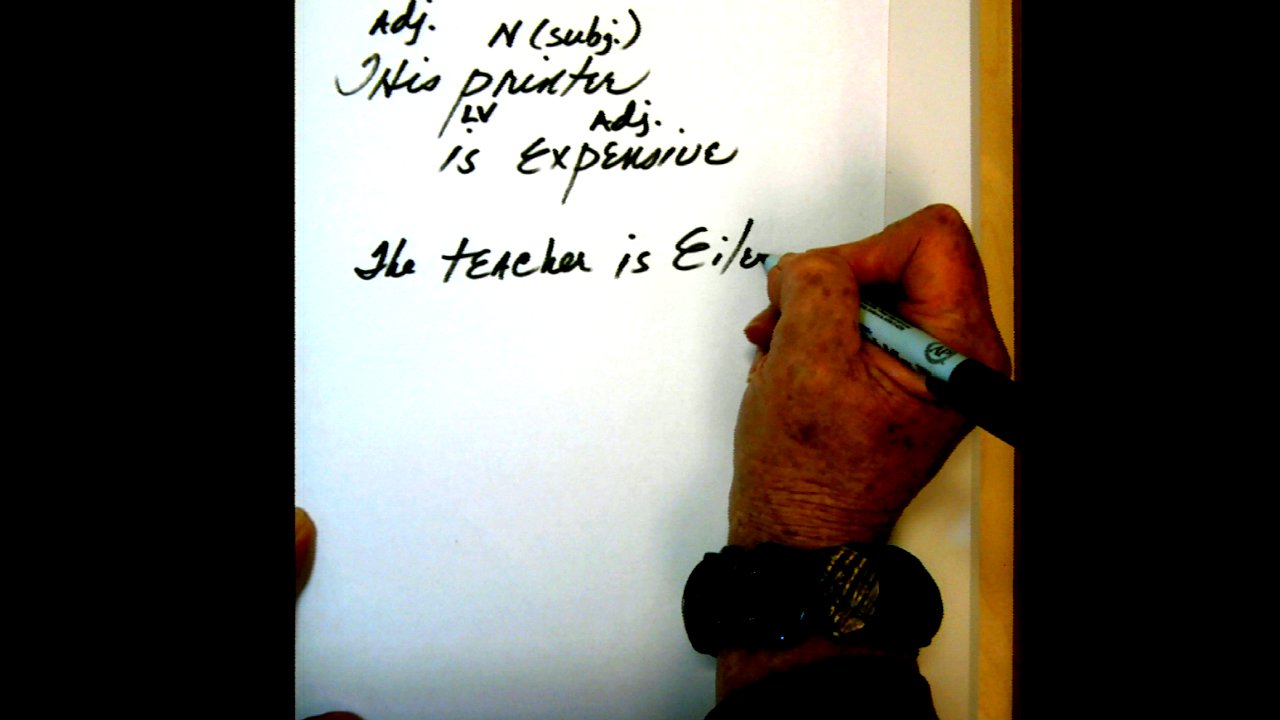 Adj. N (subj.)
THis printer
LV Adj.
is ExpENsivE
The tEAcher is Eiler